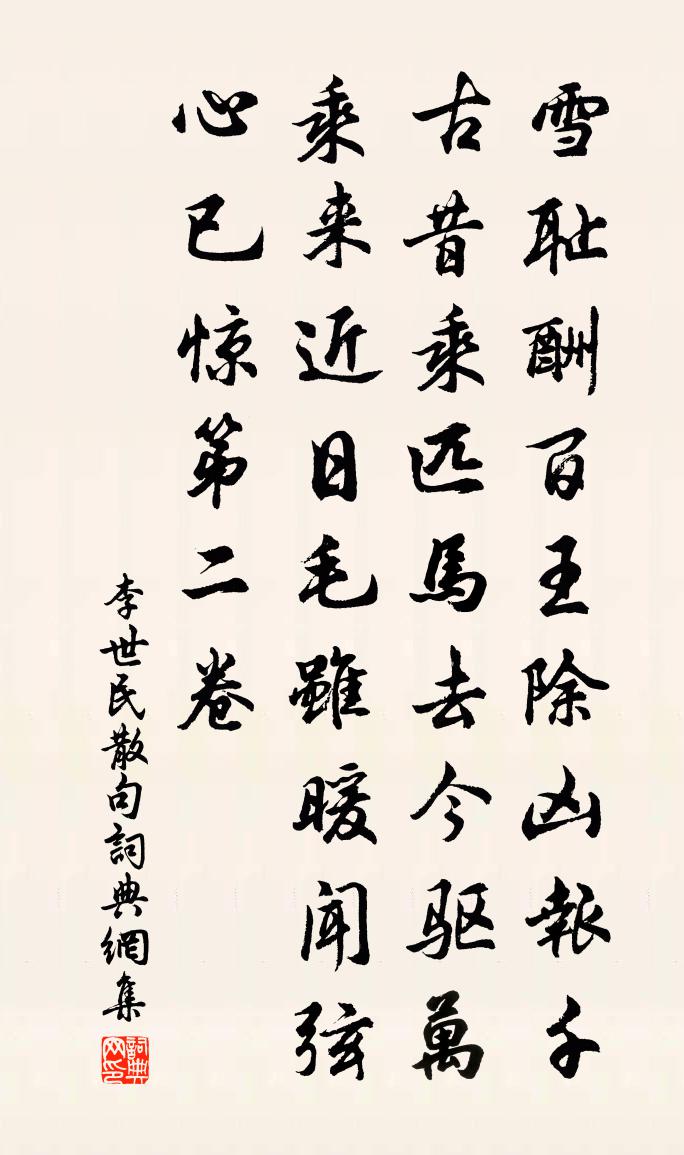 雪耻酬百王除凶報千
古昔乘匹馬去今驱萬
乘来近日毛雖暖闻弦
心已惊第二卷
李世民散句詞典網集
詞典网印